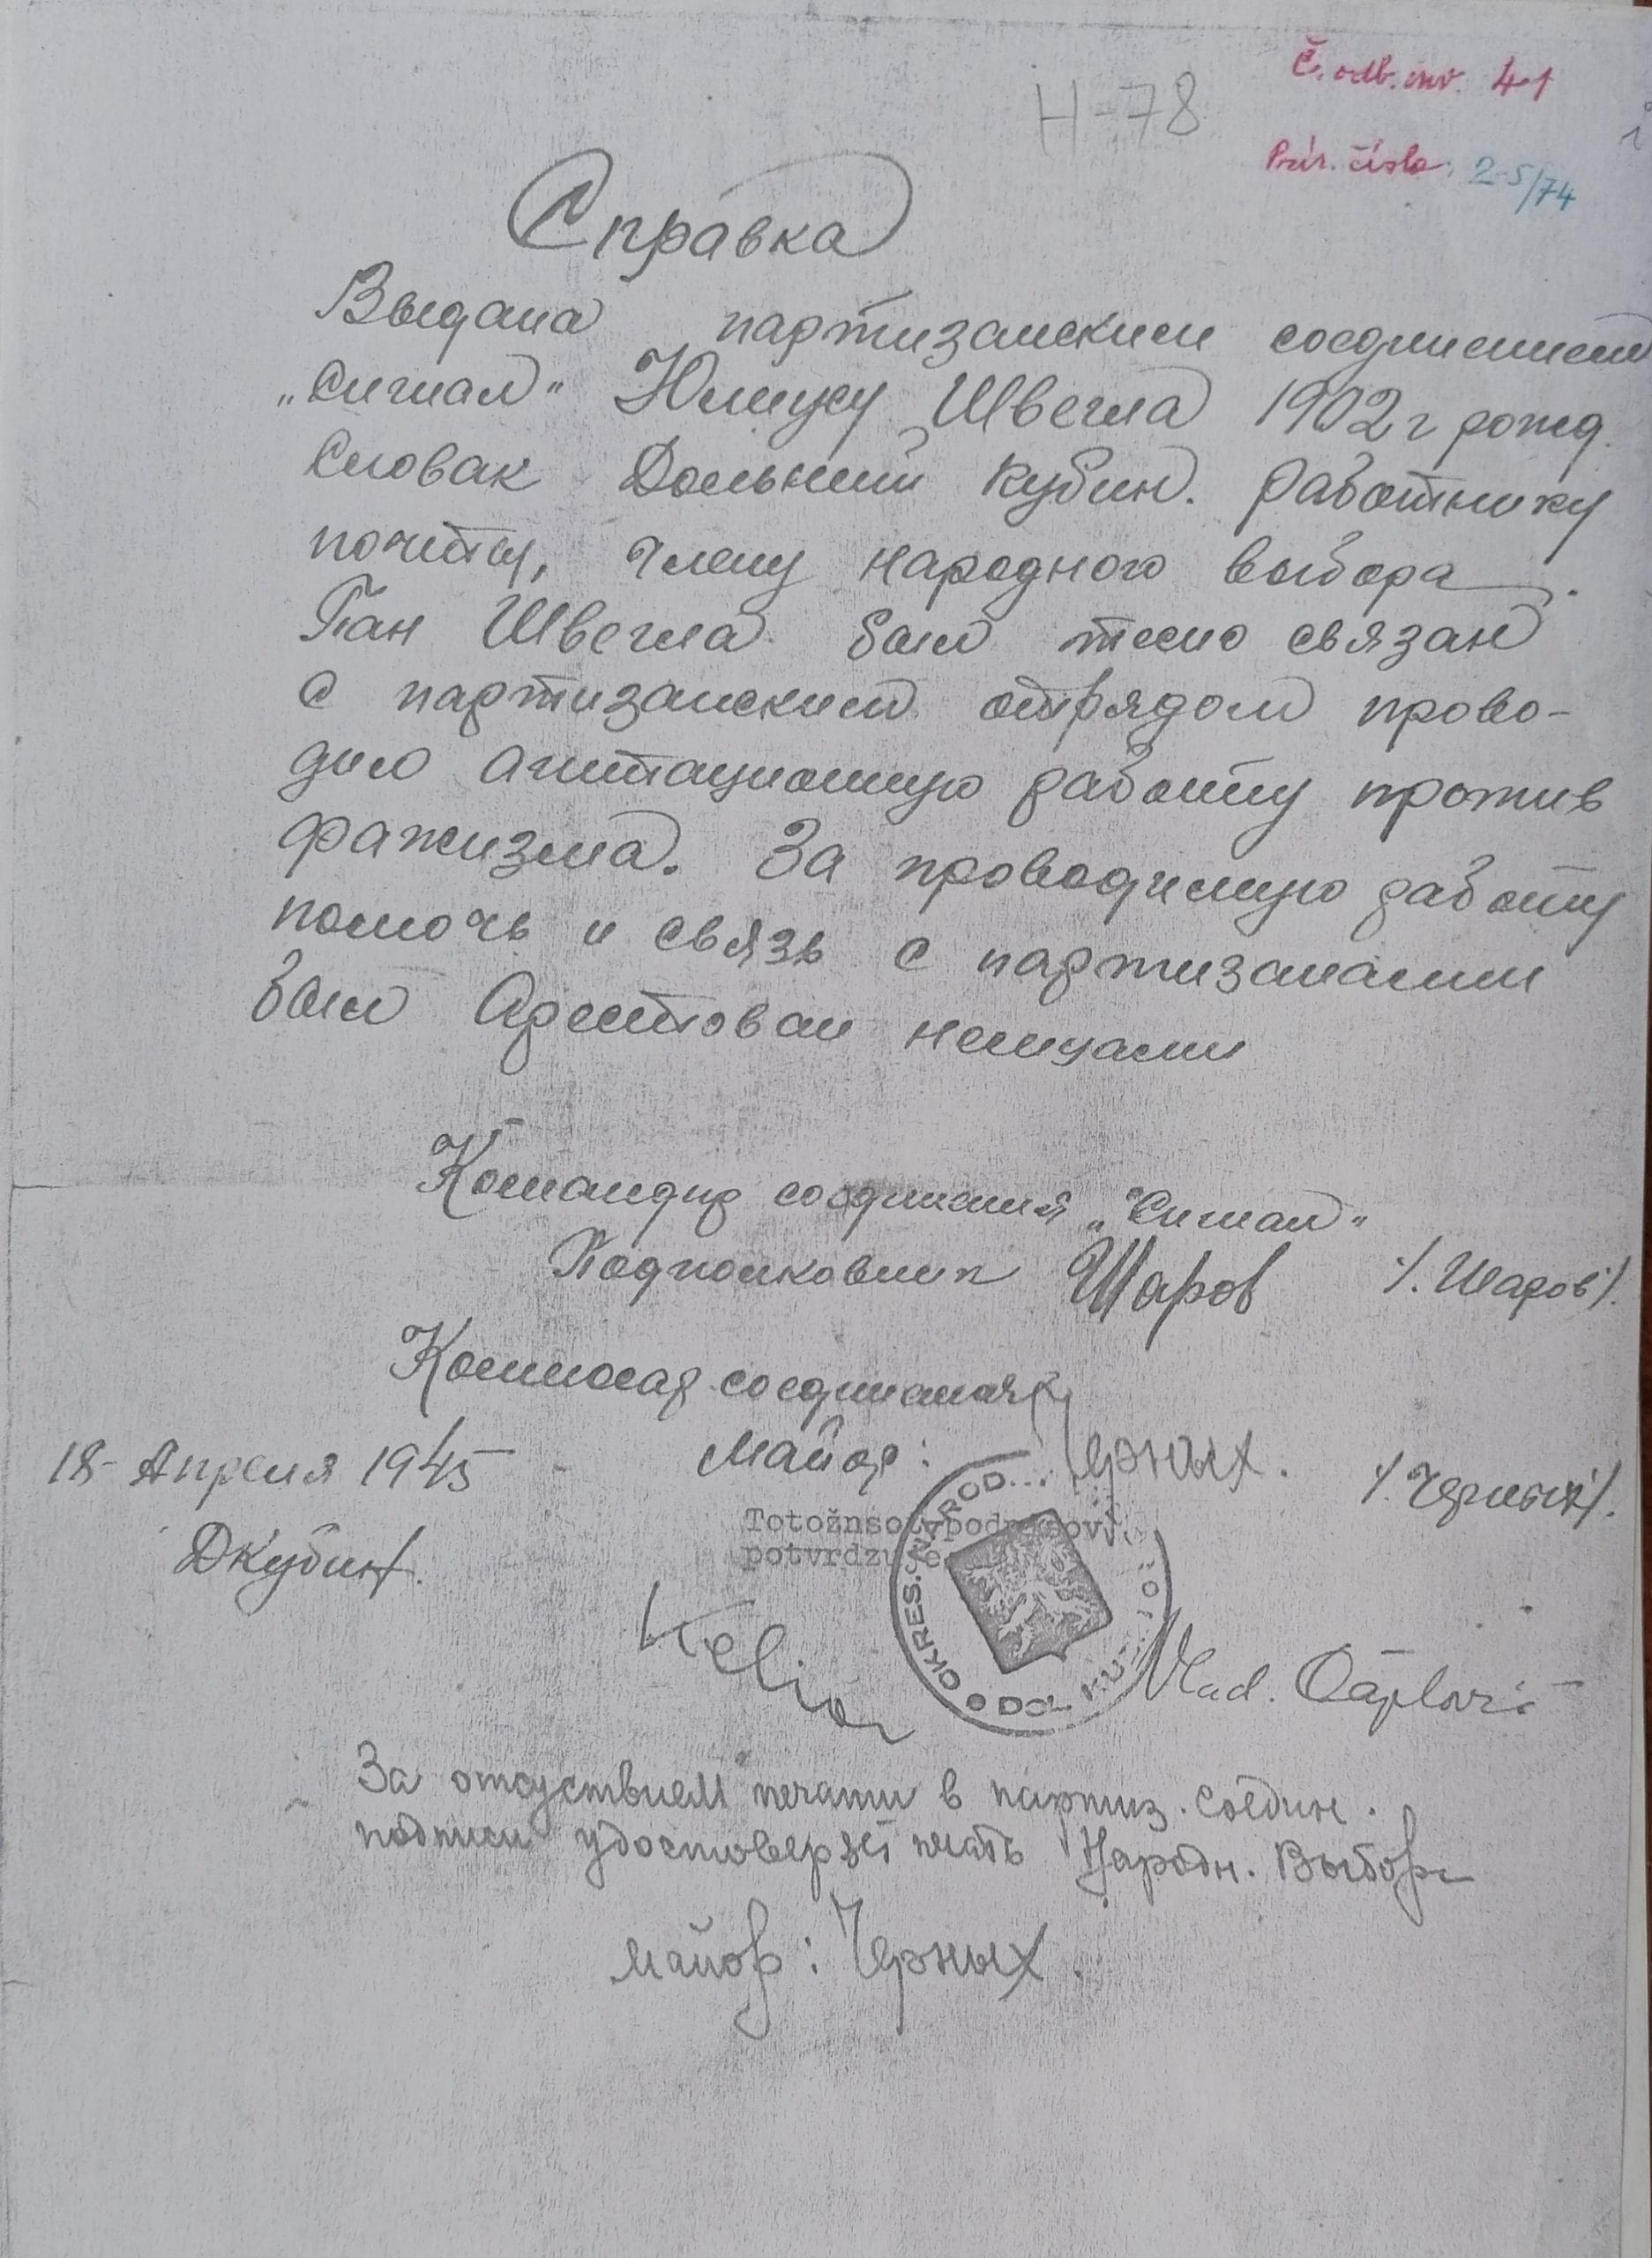 Č. odb. inv. 41
H-78
Prír. číslo: 2-5/74
Справка
Выдана партизанским соединением
„Сигнал" Юлиусу Швегла 1902 г рожд.
Словак Дольний Кубин. работнику
почты, члену народного выбора.
Пан Швегла был тесно связан
с партизанским отрядом прово-
дил агитационную работу против
фашизма. За проводимую работу
помочь и связь с партизанами
был Арестован немцами
Командир соединения „Сигнал"
Подполковник Шаров /. Шаров /.
Комиссар соединения
Майор: Черных. /. Черных /.
18 - Апреля 1945
ДКубин.
Totožnsoť podpisov
potvrdzuje
OKRES. NÁROD. DOL. KU
Vlad. Čaplovič
За отсуствием печати в партиз. соедин.
подписи удостоверяет печать Народн. Выбора
майор: Черных.